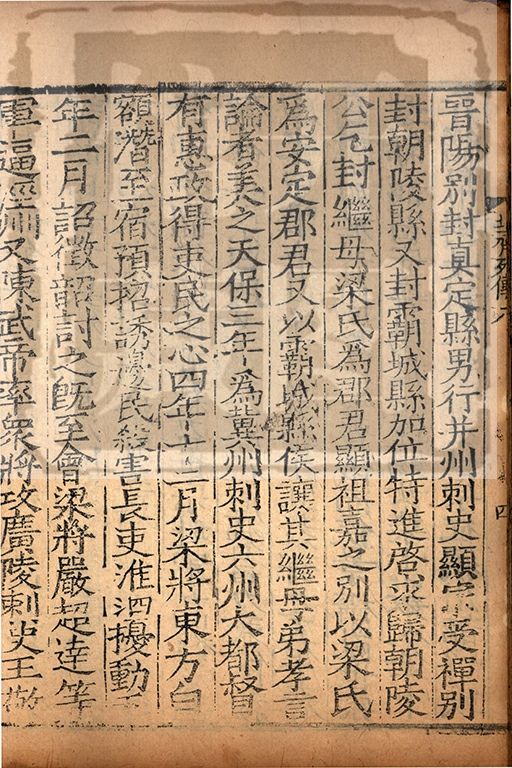 晉陽別封真定縣男行并州刺史顯宗受禪別
封朝陵縣又封霸城縣加位特進啓求歸朝陵
公乞封繼母梁氏爲郡君顯祖嘉之別以梁氏
爲安定郡君又以霸城縣侯讓其繼母弟孝言
論者美之天保三年爲冀州刺史六州大都督
有惠政得吏民之心四年十二月梁將東方白
額潛至宿預招誘邊民殺害長吏淮泗擾動
年二月詔徵韶討之既至會梁將嚴超達等
軍逼涇州又陳武帝率衆將攻廣陵刺史王
四